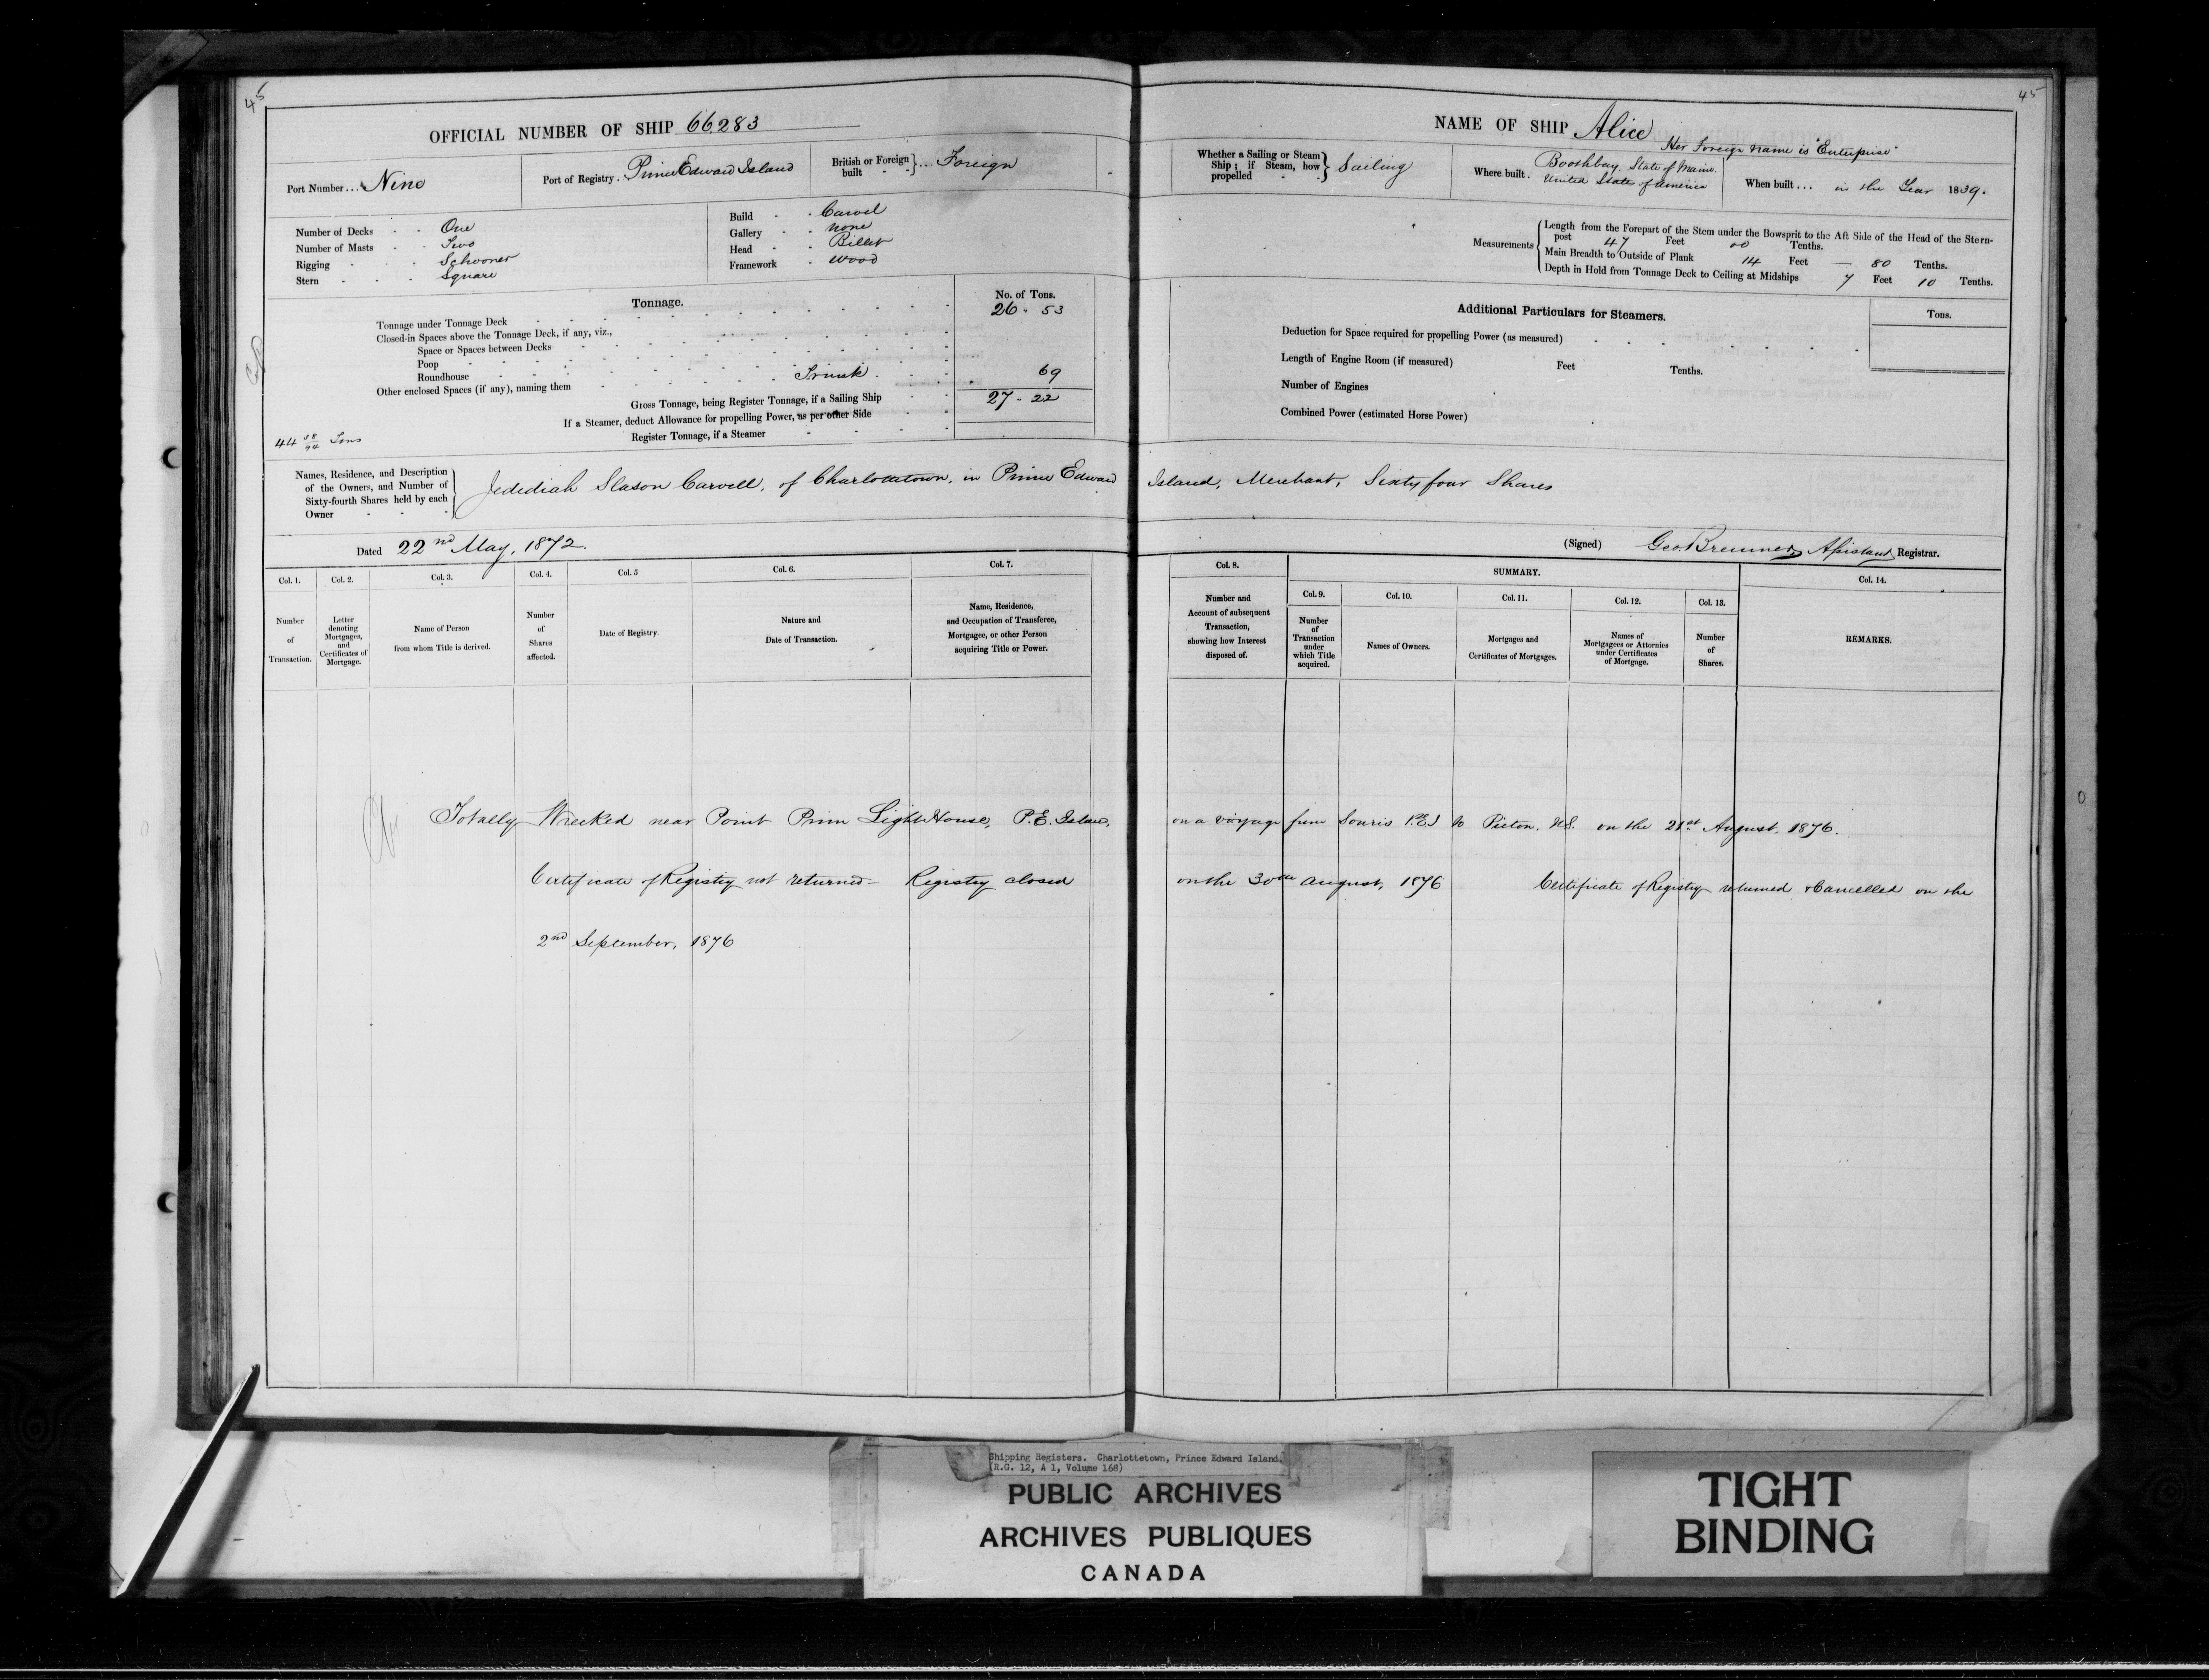 45
OFFICIAL NUMBER OF SHIP 66283
Port Number... Nine
Port of Registry. Prince Edward Island
British or Foreign built } ... Foreign
Number of Decks - - One
Number of Masts - - Two
Rigging - - - Schooner
Stern - - - Square
Build - - Carvel
Gallery - - none
Head - - Billet
Framework - wood
Tonnage.
No. of Tons.
Tonnage under Tonnage Deck 26 . 53
Closed-in Spaces above the Tonnage Deck, if any, viz.,
Space or Spaces between Decks
Poop
Roundhouse
Other enclosed Spaces (if any), naming them Trunk . 69
Gross Tonnage, being Register Tonnage, if a Sailing Ship 27 . 22
If a Steamer, deduct Allowance for propelling Power, as per other Side
Register Tonnage, if a Steamer
44 58/94 Tons
45
NAME OF SHIP Alice
Her Foreign name is "Enterprise"
Whether a Sailing or Steam Ship; if Steam, how propelled } Sailing
Where built. Boothbay, State of Maine.
United States of America
When built... in the Year 1839.
Measurements { Length from the Forepart of the Stem under the Bowsprit to the Aft Side of the Head of the Stern-
post 47 Feet 00 Tenths.
Main Breadth to Outside of Plank 14 Feet — 80 Tenths.
Depth in Hold from Tonnage Deck to Ceiling at Midships 7 Feet 10 Tenths.
Additional Particulars for Steamers.
Tons.
Deduction for Space required for propelling Power (as measured)
Length of Engine Room (if measured) Feet Tenths.
Number of Engines
Combined Power (estimated Horse Power)
Names, Residence, and Description of the Owners, and Number of Sixty-fourth Shares held by each Owner
Jedediah Slason Carvell, of Charlottetown, in Prince Edward Island, Merchant, Sixty four Shares
Dated 22nd May, 1872.
(Signed) Geo. Bremner, Assistant Registrar.
Col. 1.
Number of Transaction.
Col. 2.
Letter denoting Mortgages, and Certificates of Mortgage.
Col. 3.
Name of Person from whom Title is derived.
Col. 4.
Number of Shares affected.
Col. 5
Date of Registry.
Col. 6.
Nature and Date of Transaction.
Col. 7.
Name, Residence, and Occupation of Transferee, Mortgagee, or other Person acquiring Title or Power.
Col. 8.
Number and Account of subsequent Transaction, showing how Interest disposed of.
SUMMARY.
Col. 9.
Number of Transaction under which Title acquired.
Col. 10.
Names of Owners.
Col. 11.
Mortgages and Certificates of Mortgages.
Col. 12.
Names of Mortgagees or Attornies under Certificates of Mortgage.
Col. 13.
Number of Shares.
Col. 14.
REMARKS.
Totally Wrecked near Point Prim Light House, P.E. Island, on a voyage from Souris P.E.I to Pictou, N.S. on the 21st August, 1876.
Certificate of Registry not returned – Registry closed on the 30th August, 1876 Certificate of Registry returned & Cancelled on the
2nd September, 1876
Shipping Registers. Charlottetown, Prince Edward Island.
(R.G. 12, A 1, Volume 168)
PUBLIC ARCHIVES
ARCHIVES PUBLIQUES
CANADA
TIGHT
BINDING